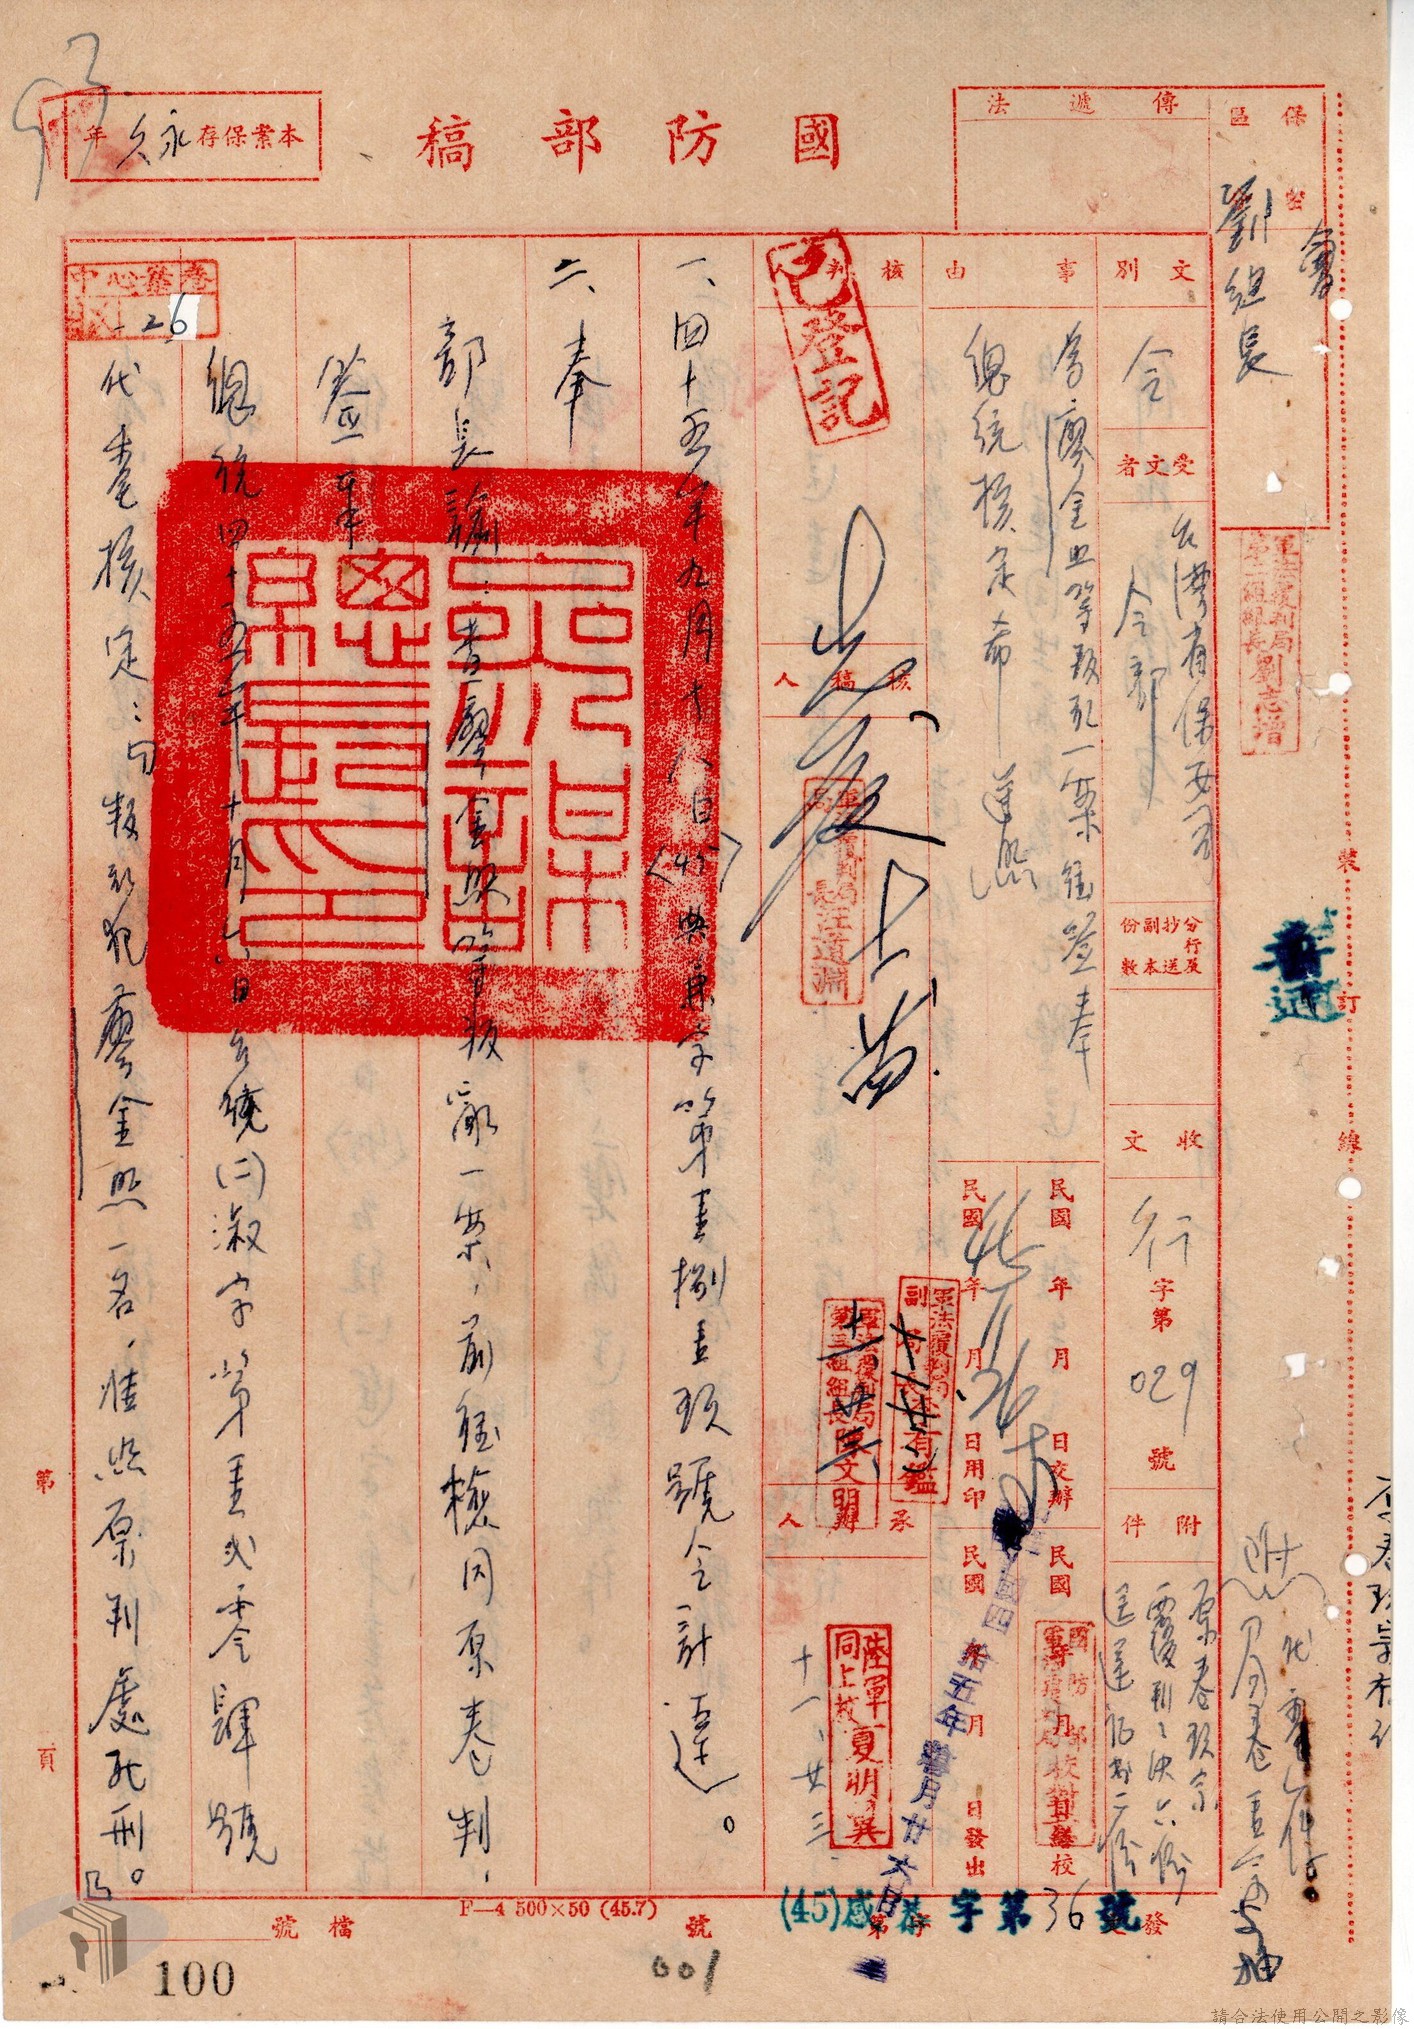 國防部稿
本案保存永久年
傳遞法
保密區
劉組長
會
文別
令
受文者
台灣省保安司
令部
分行及抄送副本份數
收文
行字第029號
附件
原卷玖宗
覆判決六份
送達證書二份
事由
為廖金照等叛亂一案經簽奉
總統核定希遵照
民國年月日交辦
民國45年11月26日用印
民國年月日繕校
民國年月日發出
核判人
已登記
核稿人
軍法覆判局局長汪道淵
軍法覆判局副局長
軍法覆判局第三組組長陳文開
承
人
陸軍同上校夏明翼
十一、廿三
軍法覆判局第二組組長劉志增
普通
裝
訂
線
一、四十五年九月十八日(45)典兼字第壹捌壹玖號令計達。
二、奉
部長諭:書廖金照等叛亂一案,前經檢同原卷判,
簽奉
總統四十五年十月六日台統(二)淑字第壹弍零肆號
代電核定:㈠叛亂犯廖金照一名,准照原判處死刑。
參謀總長之印
中心叢卷
-26
第
頁
檔號
F—4 500×50 (45.7)
號
(45)感恭字第36號
發
001
100
請合法使用公開之影像